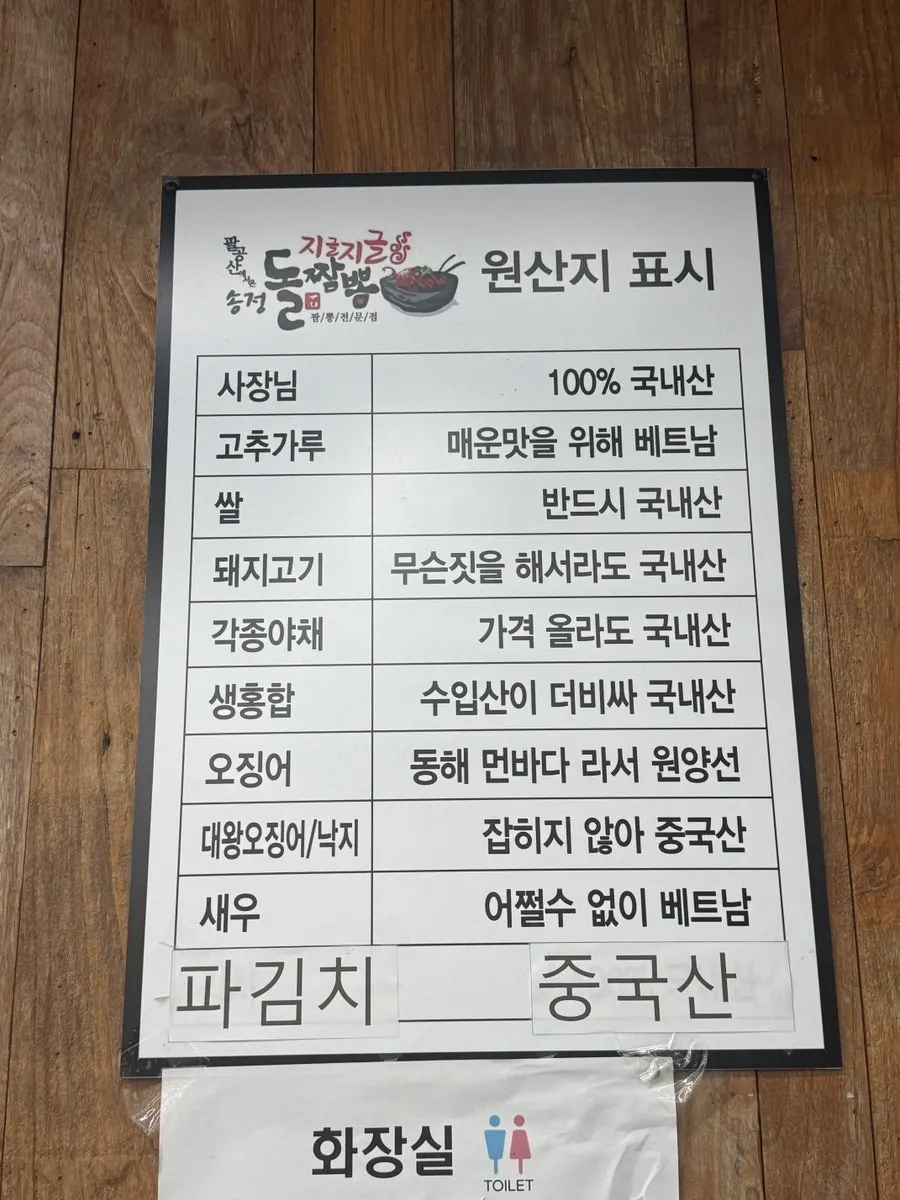 지글지글
송정 돌짬뽕
짬/뽕/전/문/점
원산지 표시
사장님 100% 국내산
고추가루 매운맛을 위해 베트남
쌀 반드시 국내산
돼지고기 무슨짓을 해서라도 국내산
각종야채 가격 올라도 국내산
생홍합 수입산이 더비싸 국내산
오징어 동해 먼바다 라서 원양선
대왕오징어/낙지 잡히지 않아 중국산
새우 어쩔수 없이 베트남
파김치 중국산
화장실
TOILET